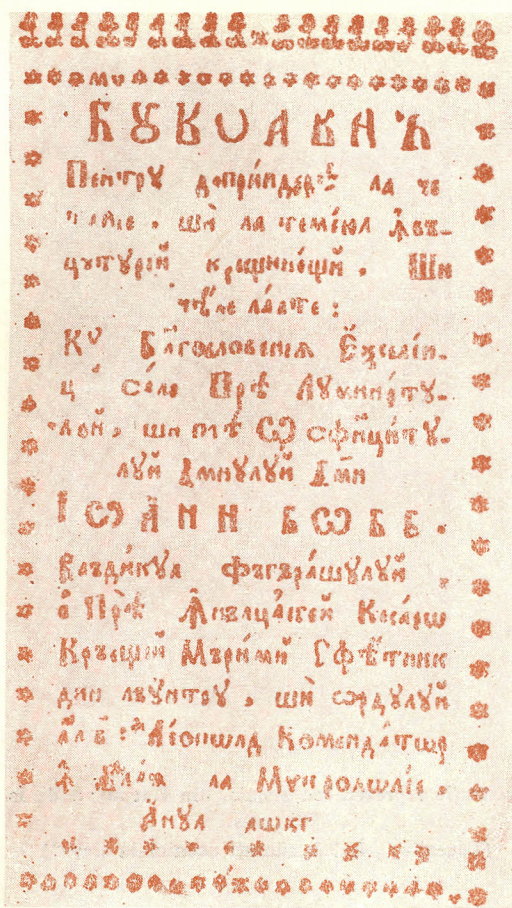 БꙊКѠАВНЪ
Пентрꙋ деприндерѣ ла че
танїе, шѝ ла темею́л ꙟ̀въ-
цътꙋрїй крещинещй. Ши
челе ла́лте:
Кꙋ Бл҃гословенїѧ
Сале Прѣ Лꙋминртꙋ-
лꙋй, ши прѣ Ѡ сфинци́тꙋ-
лꙋй Дмнꙋлꙋй Дмн
ІѠА́НН БѠББ.
Влъди́кꙋл Фъгъра́шꙋлꙋй,
а̀ Прѣ ꙟ̀нълца́тей Кеса́ро
Кръещй Мърими Сфѣтник
дин лъꙋнтрꙋ, шѝ ѻрдꙋлꙋй
Леополд Коменда́тор
ꙟ̀ Бла́ж ла Митрополїе.
А҆́нꙋл аѡкг